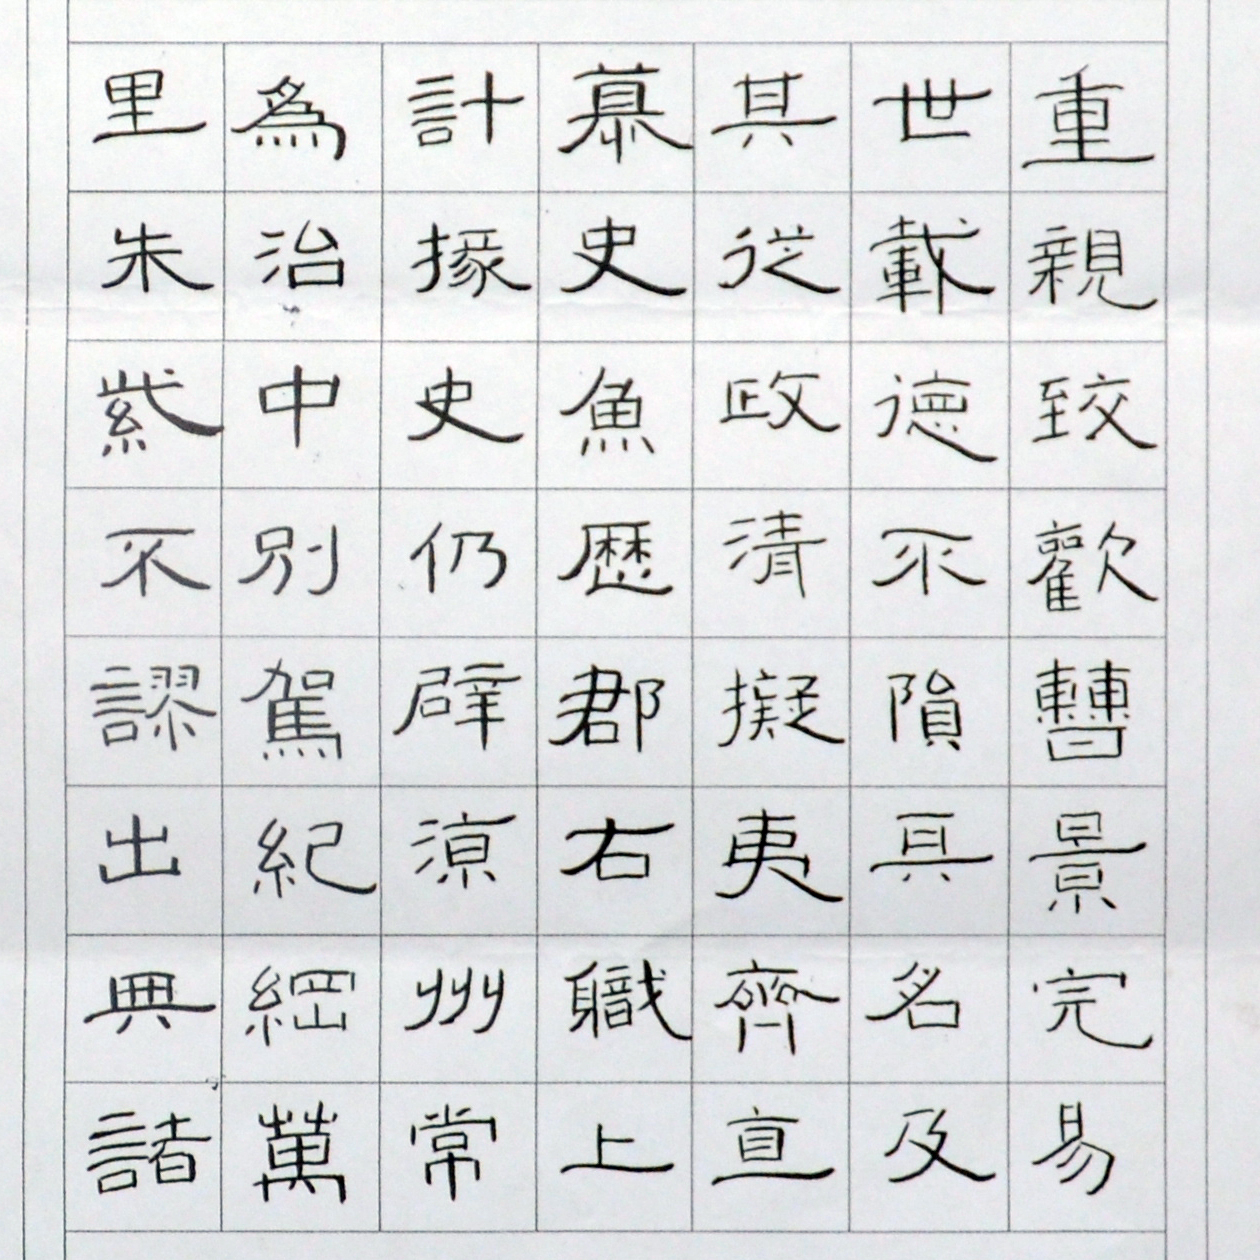 重親致歡曹景完易
世載德不隕其名及
其從政清擬夷齊直
慕史魚歷郡右職上
計掾史仍辟涼州常
為治中別駕紀綱萬
里朱紫不謬出典諸